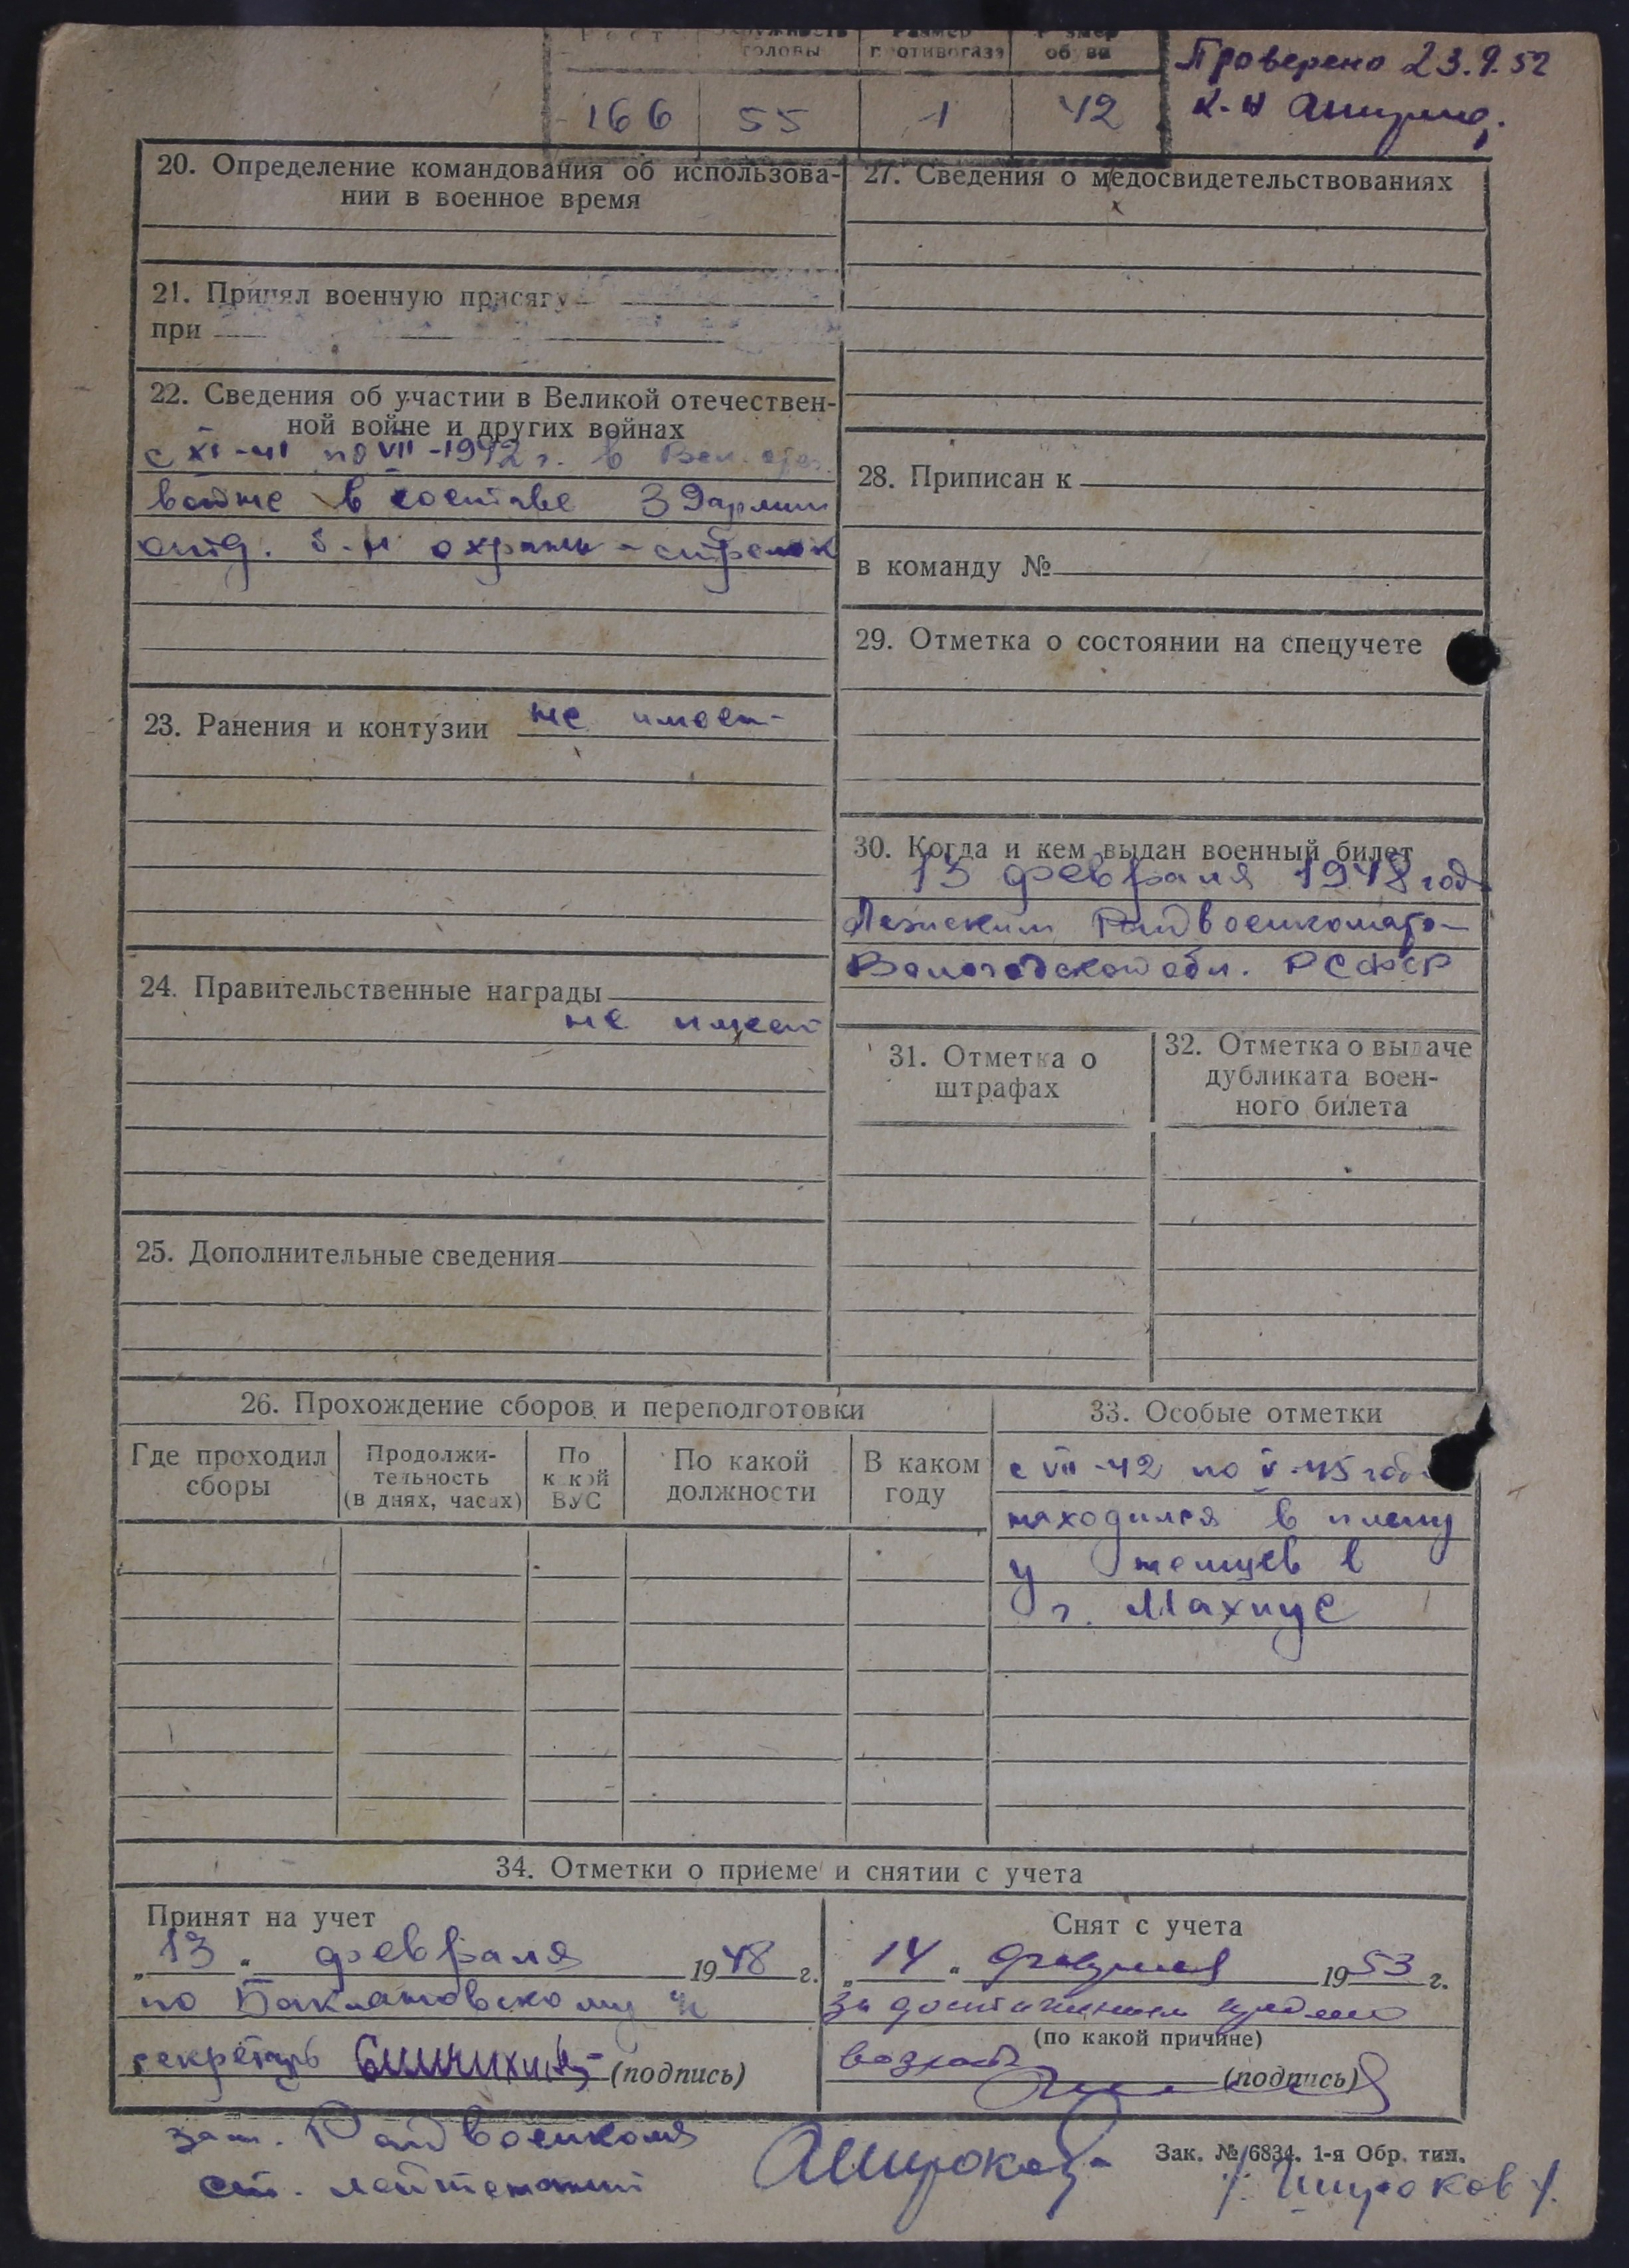 Рост
окружность головы
Размер противогаза
Размер обуви
166 55 1 42
Проверено 23.9.52
к-н
20. Определение командования об использова-
нии в военное время
21. Принял военную присягу
при
22. Сведения об участии в Великой отечествен-
ной войне и других войнах
с XI-41 по VII-1942 г. в Вел. отеч.
войне в составе 39 армии
отд. б-н охраны - стрелок
23. Ранения и контузии не имеет
24. Правительственные награды
не имеет
25. Дополнительные сведения
27. Сведения о медосвидетельствованиях
28. Приписан к
в команду №
29. Отметка о состоянии на спецучете
30. Когда и кем выдан военный билет
13 февраля 1948 года
Лежским Райвоенкомато-
Вологодской обл. РСФСР
31. Отметка о
штрафах
32. Отметка о выдаче
дубликата воен-
ного билета
26. Прохождение сборов и переподготовки
Где проходил
сборы
Продолжи-
тельность
(в днях, часах)
По
какой
ВУС
По какой
должности
В каком
году
33. Особые отметки
с VII-42 по V-45 год
находился в плену
у немцев в
г. Махнус
34. Отметки о приеме и снятии с учета
Принят на учет
„13“ февраля 1948 г.
по Баклановскому
секретарь (подпись)
Снят с учета
„14“ 1953 г.
за достижением предельно
(по какой причине)
возраста
(подпись)
зам. Райвоенкома
ст. лейтенант
АШироков
/Широков/.
Зак. № 6834. 1-я Обр. тип.